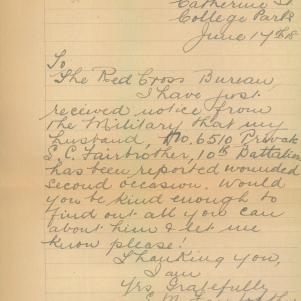 Catherine St
College Park
June 17th 18
To
The Red Cross Bureau,
I have just
received notice from
the Military that my
husband, No. 6510 Private
S. C. Fairbrother, 10th Battalion
has been reported wounded
second occasion. Would
you be kind enough to
find out all you can
about him & let me
know please!
Thanking you,
I am
Yrs. Gratefully